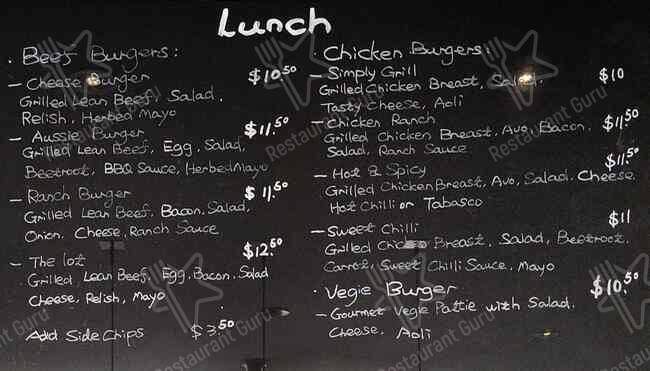 Lunch
· Beef Burgers:
– Cheese Burger $10.50
Grilled Lean Beef, Salad,
Relish, Herbed Mayo
– Aussie Burger $11.50
Grilled Lean Beef, Egg, Salad,
Beetroot, BBQ Sauce, Herbed Mayo
– Ranch Burger $11.50
Grilled Lean Beef, Bacon, Salad,
Onion, Cheese, Ranch Sauce
– The lot $12.50
Grilled Lean Beef, Egg, Bacon, Salad
Cheese, Relish, Mayo
Add Side Chips $3.50
· Chicken Burgers:
– Simply Grill $10
Grilled Chicken Breast, Salad,
Tasty Cheese, Aoli
– Chicken Ranch $11.50
Grilled Chicken Breast, Avo, Bacon,
Salad, Ranch Sauce
– Hot & Spicy $11.50
Grilled Chicken Breast, Avo, Salad, Cheese,
Hot Chilli or Tabasco
– Sweet Chilli $11
Grilled Chicken Breast, Salad, Beetroot,
Carrot, Sweet Chilli Sauce, Mayo
· Vegie Burger $10.50
– Gourmet Vegie Pattie with Salad,
Cheese, Aoli
Restaurant Guru